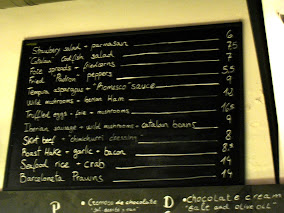 Strawberry salad - parmasan 6
"Catalan" Codfish salad 7.5
Foie spreads - friedcorns 7
Fried "Padron" peppers 5.5
Tempura asparagus - "Romesco" sauce 9
Wild mushrooms - Iberian Ham 12
Truffled eggs - foie - mushrooms 16.5
Iberian sausage - wild mushrooms - catalan beans 9
Skirt beef - "chimichurri" dressing 8
Roast Hake - garlic - bacon 8.5
Seafood rice - crab 14
Barceloneta Prawns 14
P D
• Cremoso de chocolate • chocolate cream
"salt and olive oil"